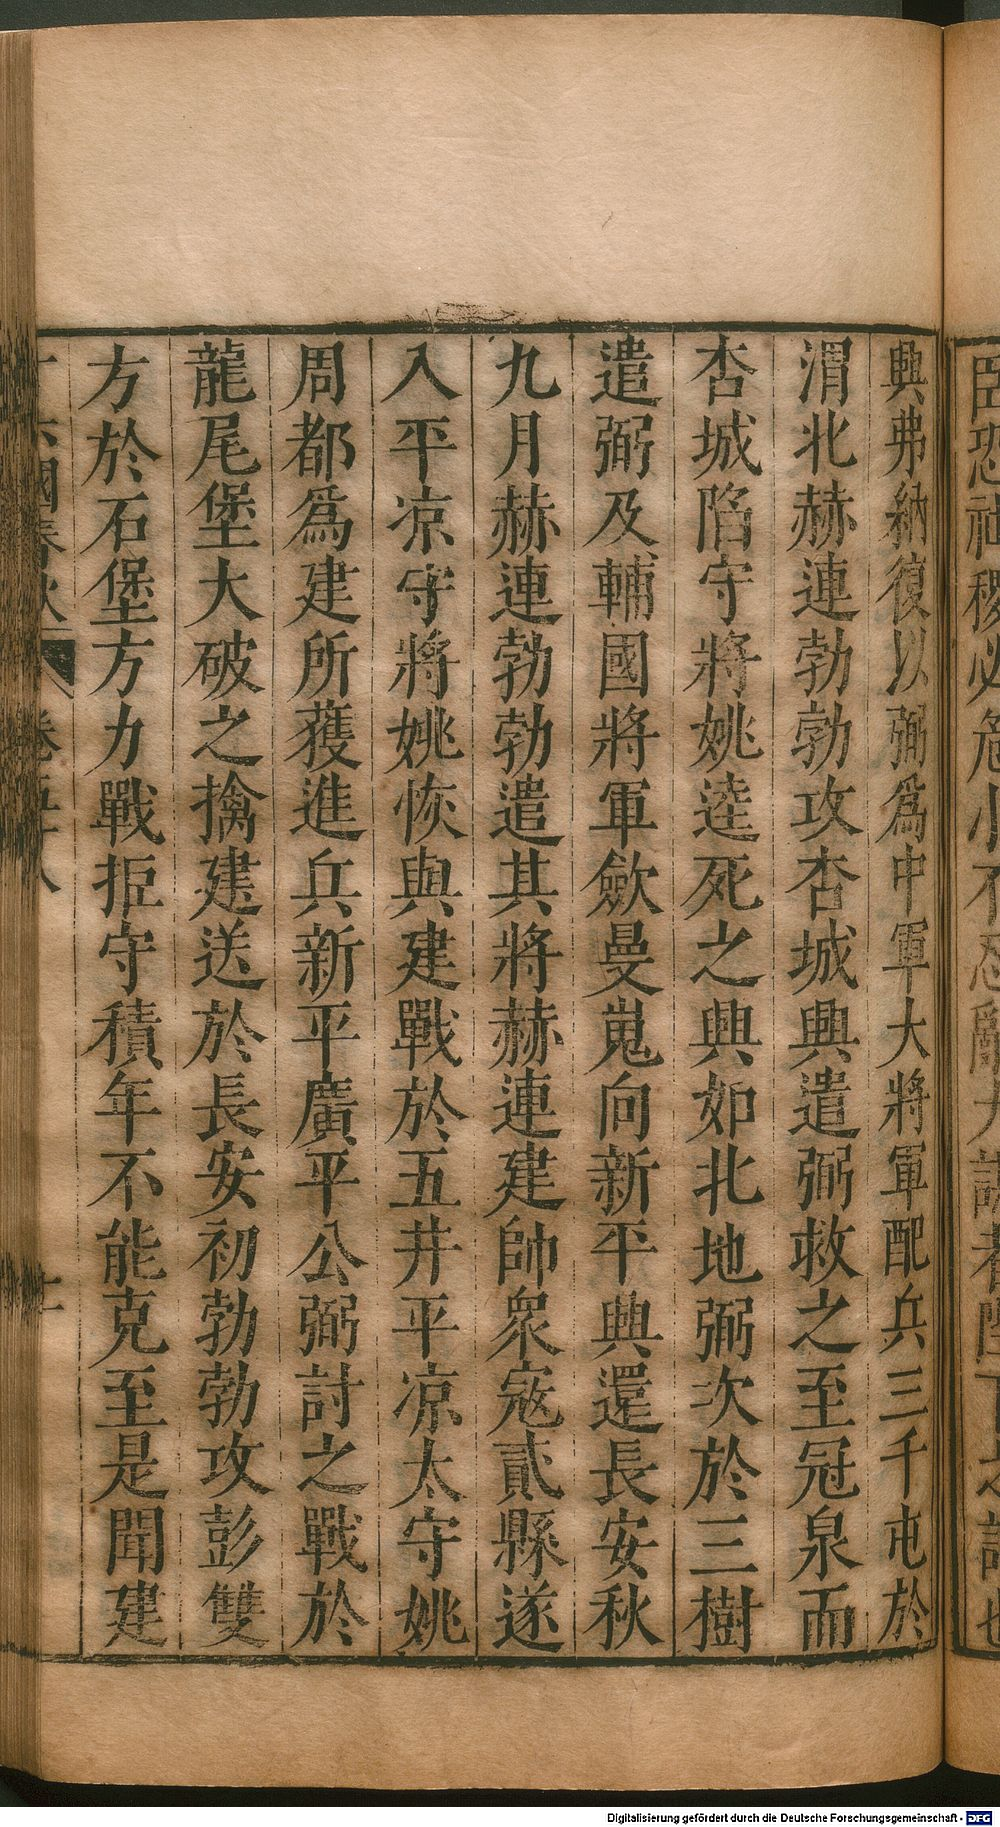 臣恐社稷必危小不忍亂大謀者陛下之謂也
興弗納復以弼爲中軍大將軍配兵三千屯於
渭北赫連勃勃攻杏城興遣弼救之至冠泉而
杏城陷守將姚逵死之興如北地弼次於三樹
遣弼及輔國將軍歛曼嵬向新平興還長安秋
九月赫連勃勃遣其將赫連建帥衆寇貳縣遂
入平凉守將姚恢與建戰於五井平凉太守姚
周都爲建所獲進兵新平廣平公弼討之戰於
龍尾堡大破之擒建送於長安初勃勃攻彭雙
方於石堡方力戰拒守積年不能克至是聞建
十六國春秋 卷五十八
Digitalisierung gefördert durch die Deutsche Forschungsgemeinschaft - DFG